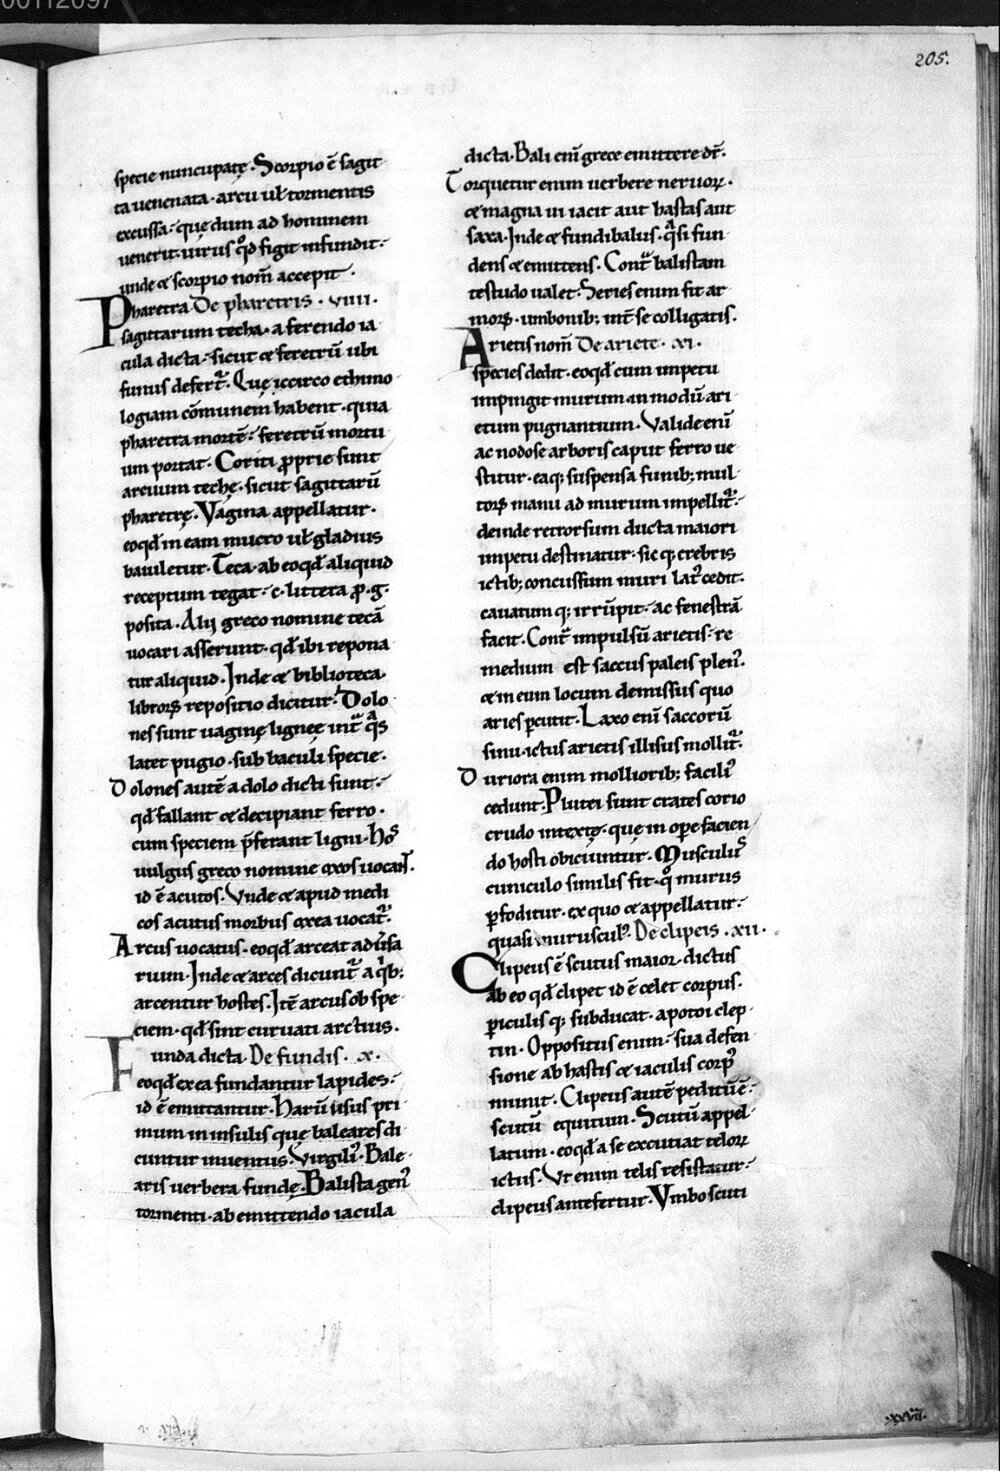 00112697
205.
specie nuncupatę. Scorpio ē sagit
ta uenenata. arcu uł tormentis
excussa. que dum ad hominem
uenerit. uirus qͦd figit infundit.
unde & scorpio nom̄ accepit.
Pharetra De pharetris. viiii.
sagittarum techa. a ferendo ia
cula dicta. sicut & feretrū ubi
funus defert᷑. Que iccirco ethimo
logiam cōmunem habent. quia
pharetra mortē. feretrū mortu
um portat. Coriti ꝓprie sunt
arcuum techę. sicut sagittarū
pharetrę. Vagina appellatur.
eoqđ in eam mucro uł gladius
baiuletur. Teca. ab eoqđ aliquid
receptum tegat. c. littera ꝓ. g.
posita. Alij greco nomine tecā
uocari asserunt. qđ ibi repona
tur aliquid. Inde & biblioteca.
librorꝝ repositio dicitur. Dolo
nes sunt uaginę lignee int᷑ q̄s
latet pugio. sub baculi specie.
Dolones autē a dolo dicti sunt.
qđ fallant & decipiant ferro.
cum speciem p̄ferant ligni. Hos
uulgus greco nomine oxos uocant.
id ē acutos. Vnde & apud medi
cos acutus morbus oxea uocat᷑.
Arcus uocatus. eoqđ arceat aduersa
rium. Inde & arces dicunt᷑ a qͥb;
arcentur hostes. Itē arcus ob spe
ciem. qđ sint curuati arctius.
Funda dicta De fundis. x.
eoqđ ex ea fundantur lapides.
id ē emittantur. Harū usus pri
mum in insulis quę baleares di
cuntur inuentus. Virgiliꝰ. Bale
aris uerbera fundę. Balista genꝰ
tormenti. ab emittendo iacula
dicta. Bali enī grece emittere dr̄.
Torquetur enim uerbere neruoꝝ.
& magna ui iacit aut hastas aut
saxa. Inde & fundibalus. q̄si fun
dens & emittens. Cont᷑ balistam
testudo ualet. Series enim fit ar
morꝝ. umbonib; int᷑ se colligatis.
Arietis nom̄ De ariete. xi.
species dedit. eoqđ cum impetu
impingit murum. in modū ari
etum pugnantium. Valide enī
ac nodose arboris caput ferro ue
stitur. eaq; suspensa funib; mul
torꝝ manu ad murum impellit᷑.
deinde retrorsum ducta maiori
impetu destinatur. sic q; crebris
ictib; concussum muri latꝰ cedit.
cauatum q; irrūpit. ac fenestrā
facit. Cont᷑ impulsū arietis. re
medium est saccus paleis plenꝰ.
& in eum locum demissus quo
aries ꝑcutit. Laxo enī saccorū
sinu. ictus arietis illisus mollit᷑.
Duriora enim molliorib; faciliꝰ
cedunt. Plutei sunt crates corio
crudo intextę. que in opere facien
do hosti obiciuntur. Musculus
cuniculo similis fit. qͦ murus
ꝑfoditur. ex quo & appellatur.
quasi murusculꝰ. De clipeis. xii.
Clipeus ē scutus maior. dictus
ab eo qđ clipet id ē celet corpus.
ꝑiculis q; subducat. apotoi clep
tin. Oppositus enim. sua defen
sione ab hastis & iaculis corpꝰ
munit. Clipeus autē peditū ē.
scutū equitum. Scutū appel
latum. eoqđ a se excutiat teloꝝ
ictus. Vt enim telis resistatur.
clipeus antefertur. Vmbo scuti